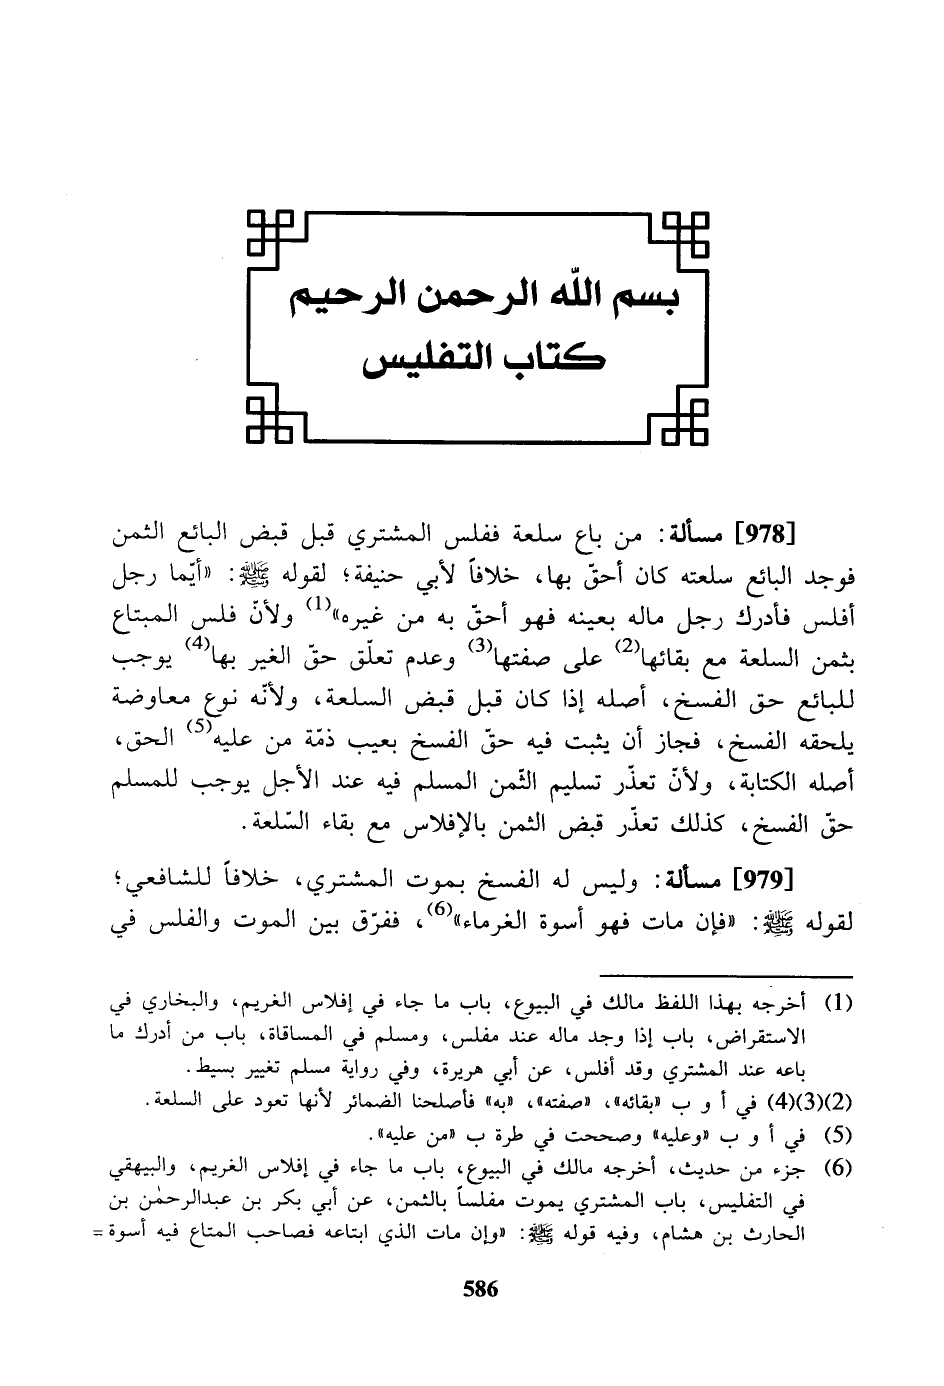 بسم الله الرحمن الرحيم
كتاب التفليس
[978] مسألة: من باع سلعة ففلس المشتري قبل قبض البائع الثمن
فوجد البائع سلعته كان أحقّ بها، خلافاً لأبي حنيفة؛ لقوله ﷺ: «أيّما رجل
أفلس فأدرك رجل ماله بعينه فهو أحقّ به من غيره»(1) ولأنّ فلس المبتاع
بثمن السلعة مع بقائها(2) على صفتها(3) وعدم تعلّق حقّ الغير بها(4) يوجب
للبائع حق الفسخ، أصله إذا كان قبل قبض السلعة، ولأنّه نوع معاوضة
يلحقه الفسخ، فجاز أن يثبت فيه حقّ الفسخ بعيب ذمّة من عليه(5) الحق،
أصله الكتابة، ولأنّ تعذّر تسليم الثّمن المسلم فيه عند الأجل يوجب للمسلم
حقّ الفسخ، كذلك تعذّر قبض الثمن بالإفلاس مع بقاء السّلعة.
[979] مسألة: وليس له الفسخ بموت المشتري، خلافاً للشافعي؛
لقوله ﷺ: «فإن مات فهو أسوة الغرماء»(6)، ففرّق بين الموت والفلس في
(1) أخرجه بهذا اللفظ مالك في البيوع، باب ما جاء في إفلاس الغريم، والبخاري في
الاستقراض، باب إذا وجد ماله عند مفلس، ومسلم في المساقاة، باب من أدرك ما
باعه عند المشتري وقد أفلس، عن أبي هريرة، وفي رواية مسلم تغيير بسيط.
(2)(3)(4) في أ و ب «بقائه»، «صفته»، «به» فأصلحنا الضمائر لأنها تعود على السلعة.
(5) في أ و ب «وعليه» وصححت في طرة ب «من عليه».
(6) جزء من حديث، أخرجه مالك في البيوع، باب ما جاء في إفلاس الغريم، والبيهقي
في التفليس، باب المشتري يموت مفلساً بالثمن، عن أبي بكر بن عبدالرحمٰن بن
الحارث بن هشام، وفيه قوله ﷺ: «وإن مات الذي ابتاعه فصاحب المتاع فيه أسوة =
586